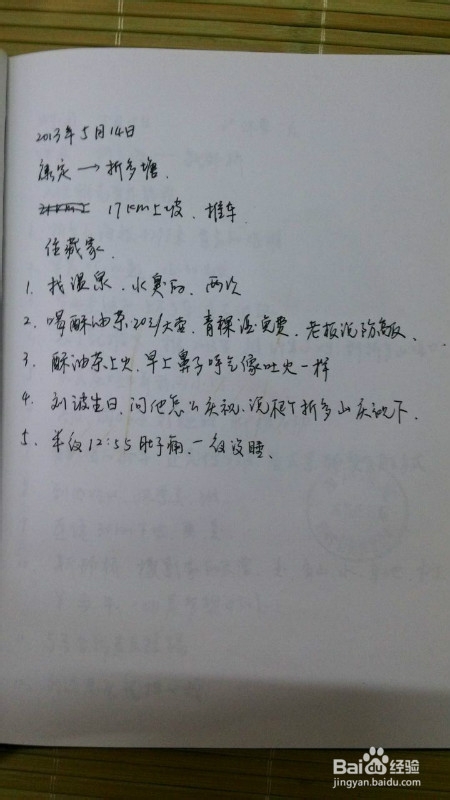 2013年5月14日
康定→折多塘.
17km上坡、推车
住藏家.
1. 找温泉、水臭的、两次
2. 喝酥油茶20元/大壶、青稞酒免费、老板说防高反、
3. 酥油茶上火、早上鼻子呼气像吐火一样
4. 刘波生日、问他怎么庆祝、说把个折多山庆祝下.
5. 半夜12:55肚子痛、一夜没睡、
Baidu经验
jingyan.baidu.com